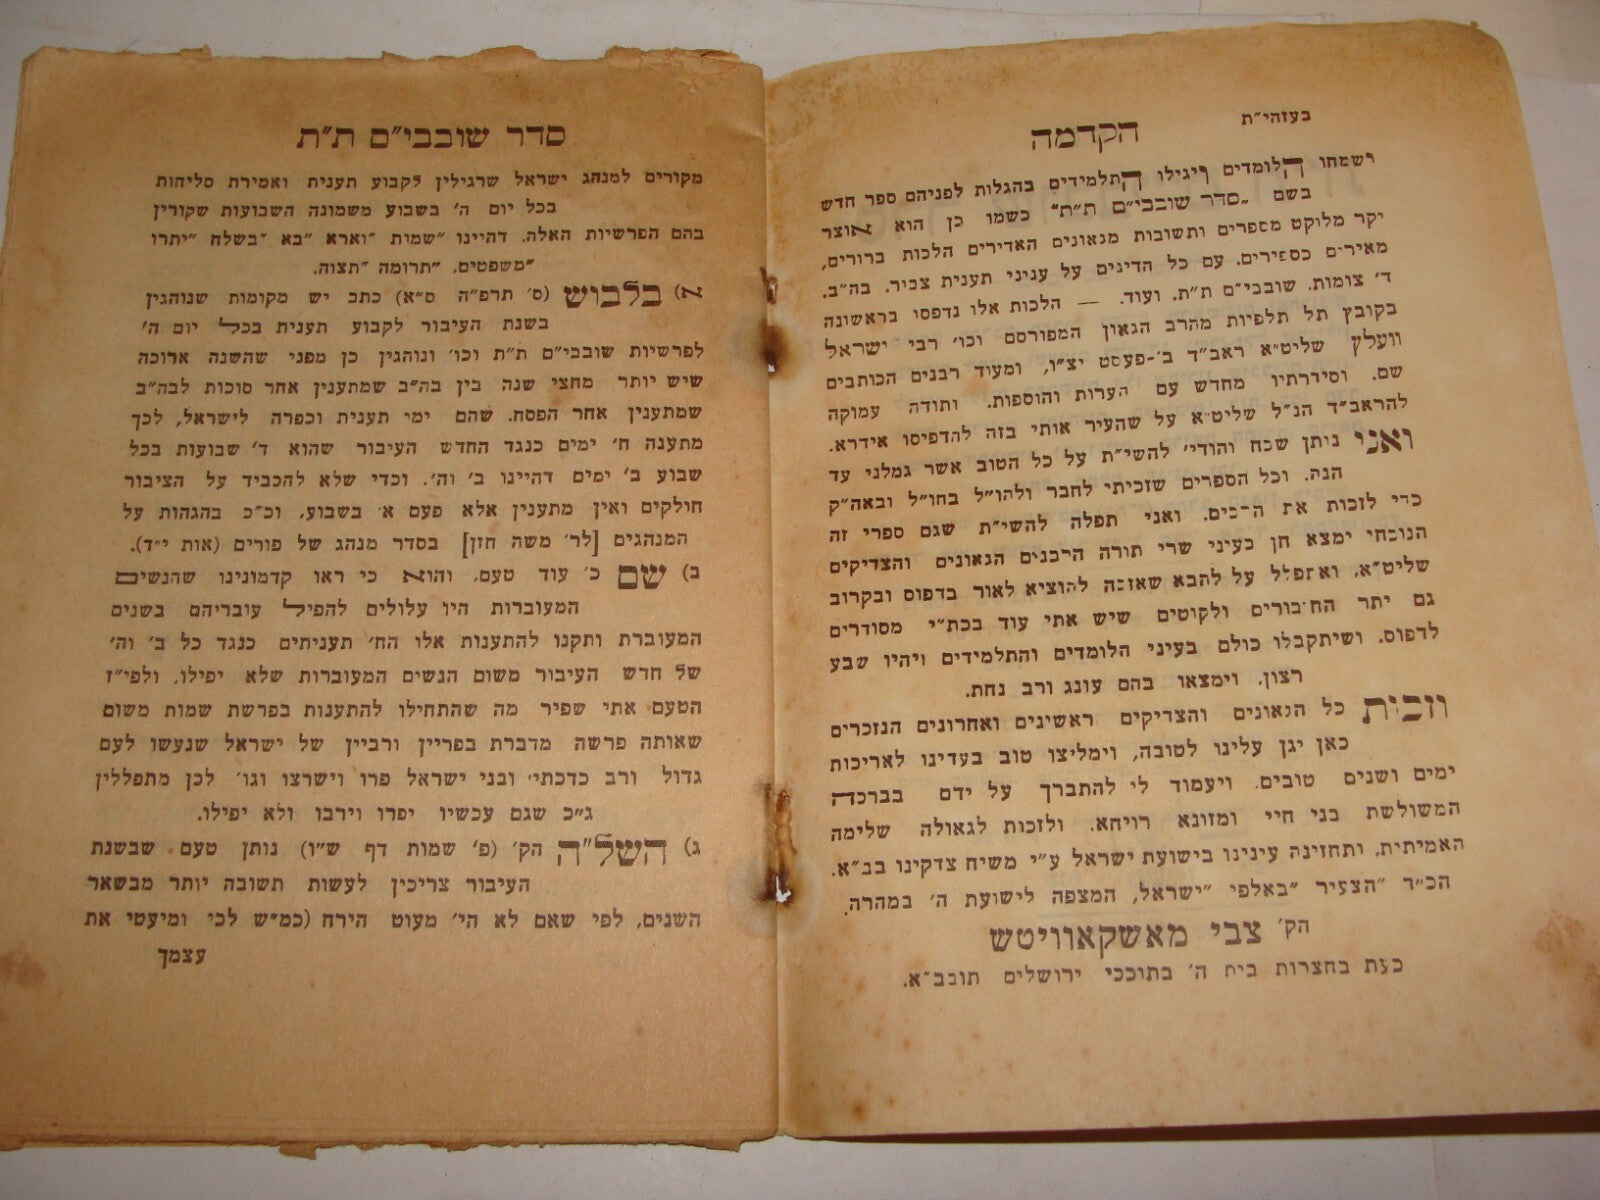 בעזהי״ת
הקדמה
ישמחו הלומדים ויגילו התלמידים בהגלות לפניהם ספר חדש
בשם ״סדר שובבי״ם ת״ת״ כשמו כן הוא אוצר
יקר מלוקט מספרים ותשובות מגאונים האדירים הלכות ברורים,
מאירים כספירים. עם כל הדינים על עניני תענית צבור. בה״ב.
ד׳ צומות. שובבי״ם ת״ת. ועוד. — הלכות אלו נדפסו בראשונה
בקובץ תל תלפיות מהרב הגאון המפורסם וכו׳ רבי ישראל
וועלץ שליט״א ראב״ד ב׳-פעסט יצ״ו, ומעוד רבנים הכותבים
שם. וסידרתיו מחדש עם הערות והוספות. ותודה עמוקה
להראב״ד הנ״ל שליט״א על שהעיר אותי בזה להדפיסו אידרא.
ואני נותן שבח והודי׳ להשי״ת על כל הטוב אשר גמלני עד
הנה. וכל הספרים שזכיתי לחבר ולהו״ל בחו״ל ובאה״ק
כדי לזכות את הרבים. ואני תפלה להשי״ת שגם ספרי זה
הנוכחי ימצא חן בעיני שרי תורה הרבנים הגאונים והצדיקים
שליט״א, ואתפלל על להבא שאזכה להוציא לאור בדפוס ובקרוב
גם יתר החבורים ולקוטים שיש אתי עוד בכת״י מסודרים
לדפוס. ושיתקבלו כולם בעיני הלומדים והתלמידים ויהיו שבע
רצון, וימצאו בהם עונג ורב נחת.
וזכות כל הגאונים והצדיקים ראשינים ואחרונים הנזכרים
כאן יגן עלינו לטובה, וימליצו טוב בעדינו לאריכות
ימים ושנים טובים. ויעמוד לי להתברך על ידם בברכה
המשולשת בני חיי ומזונא רויחא. ולזכות לגאולה שלימה
האמיתית, ותחזינה עינינו בישועת ישראל ע״י משיח צדקינו בב״א.
הכ״ד ״הצעיר ״באלפי ״ישראל, המצפה לישועת ה׳ במהרה.
הק׳ צבי מאשקאוויטש
כעת בחצרות בית ה׳ בתוככי ירושלים תובב״א.
סדר שובבי״ם ת״ת
מקורים למנהג ישראל שרגילין לקבוע תענית ואמירת סליחות
בכל יום ה׳ בשבוע משמונה השבועות שקורין
בהם הפרשיות האלה. דהיינו ״שמות ״וארא ״בא ״בשלח ״יתרו
״משפטים, ״תרומה ״תצוה.
א) בלבוש (ס׳ תרפ״ה ס״א) כתב יש מקומות שנוהגין
בשנת העיבור לקבוע תענית בכל יום ה׳
לפרשיות שובבי״ם ת״ת וכו׳ ונוהגין כן מפני שהשנה ארוכה
שיש יותר מחצי שנה בין בה״ב שמתענין אחר סוכות לבה״ב
שמתענין אחר הפסח. שהם ימי תענית וכפרה לישראל, לכך
מתענה ח׳ ימים כנגד החדש העיבור שהוא ד׳ שבועות בכל
שבוע ב׳ ימים דהיינו ב׳ וה׳. וכדי שלא להכביד על הציבור
חולקים ואין מתענין אלא פעם א׳ בשבוע, וכ״כ בהגהות על
המנהגים [לר׳ משה חזן] בסדר מנהג של פורים (אות י״ד).
ב) שם כ׳ עוד טעם, והוא כי ראו קדמונינו שהנשים
המעוברות היו עלולים להפיל עובריהם בשנים
המעוברת ותקנו להתענות אלו הח׳ תעניתים כנגד כל ב׳ וה׳
של חדש העיבור משום הנשים המעוברות שלא יפילו, ולפי״ז
הטעם אתי שפיר מה שהתחילו להתענות בפרשת שמות משום
שאותה פרשה מדברת בפריין ורביין של ישראל שנעשו לעם
גדול ורב כדכתי׳ ובני ישראל פרו וישרצו וגו׳ לכן מתפללין
ג״כ שגם עכשיו יפרו וירבו ולא יפילו.
ג) השל״ה הק׳ (פ׳ שמות דף ש״ו) נותן טעם שבשנת
העיבור צריכין לעשות תשובה יותר מבשאר
השנים, לפי שאם לא הי׳ מעוט הירח (כמ״ש לכי ומיעטי את
עצמך